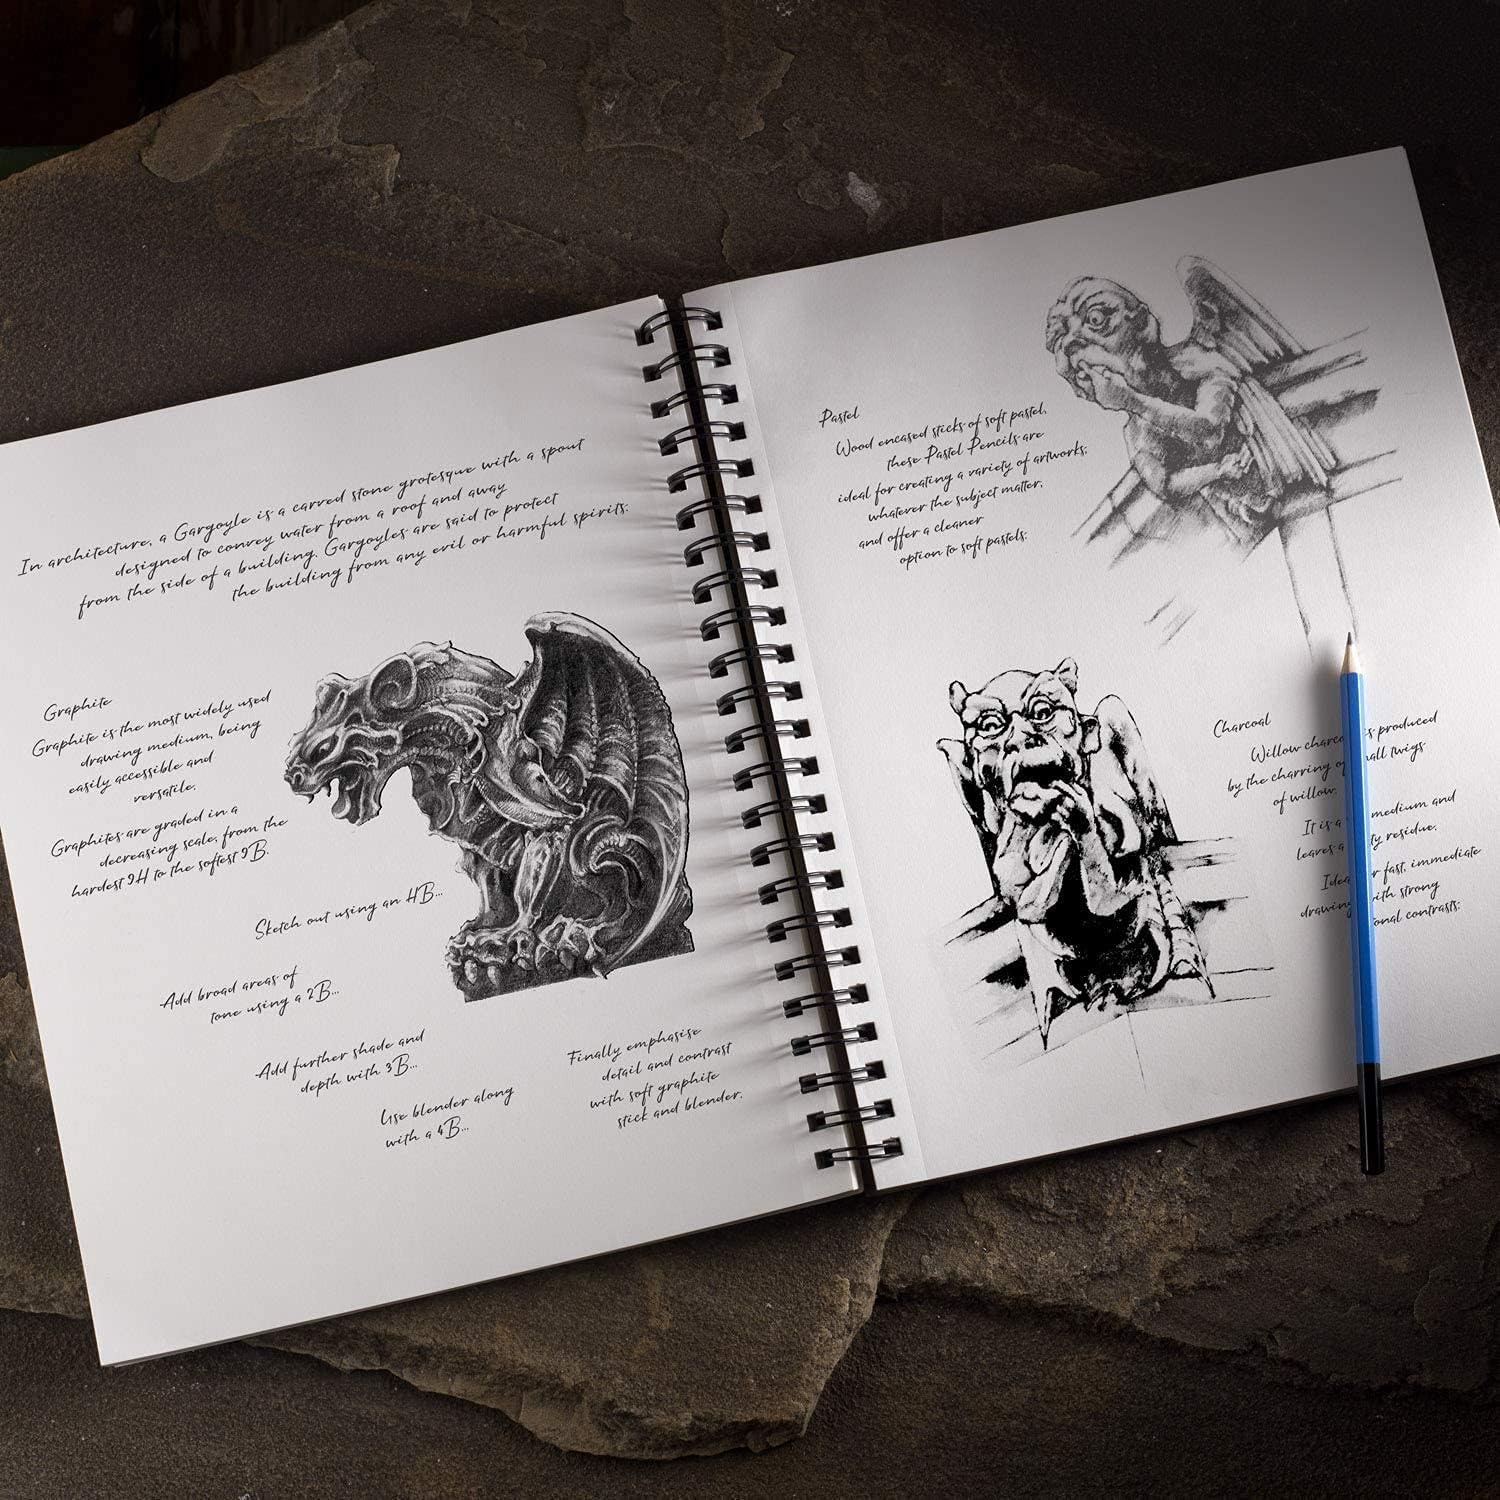 In architecture, a Gargoyle is a carved stone grotesque with a spout
designed to convey water from a roof and away
from the side of a building. Gargoyles are said to protect
the building from any evil or harmful spirits.
Graphite
Graphite is the most widely used
drawing medium, being
easily accessible and
versatile.
Graphites are graded in a
decreasing scale, from the
hardest 9H to the softest 9B.
Sketch out using an HB...
Add broad areas of
tone using a 2B...
Add further shade and
depth with 3B...
Use blender along
with a 4B...
Finally emphasise
detail and contrast
with soft graphite
stick and blender.
Pastel
Wood encased sticks of soft pastel,
these Pastel Pencils are
ideal for creating a variety of artworks,
whatever the subject matter,
and offer a cleaner
option to soft pastels.
Charcoal
Willow produced
by the charring twigs
of willow.
It is a medium and
leaves a residue.
fast, immediate
with strong
contrasts.